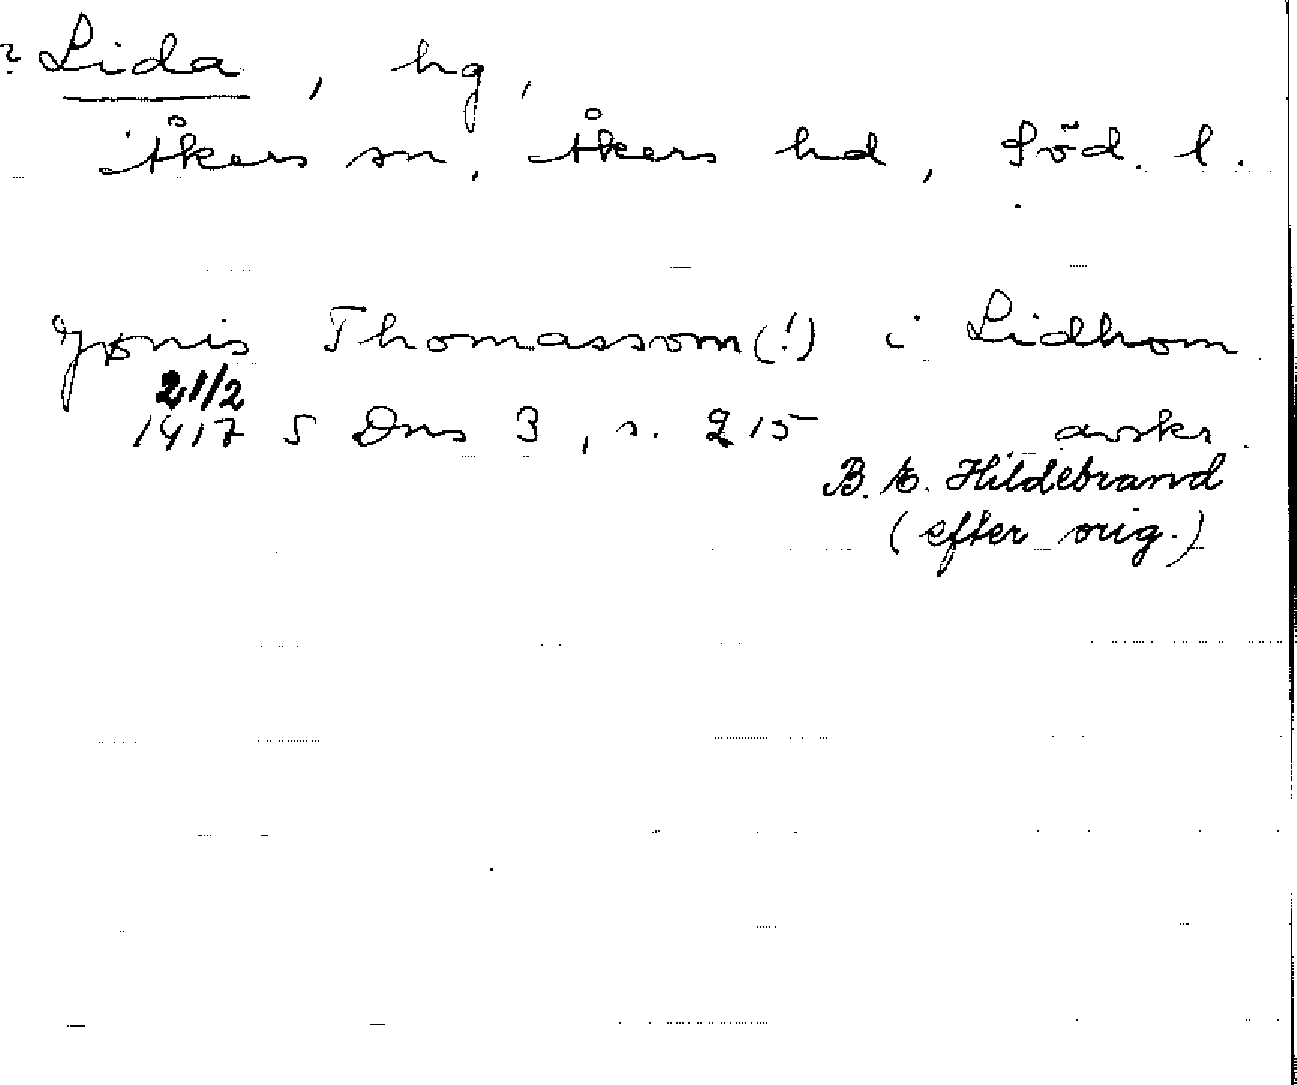 ? Lida, hg,
Åkers sn, Åkers hd, Söd. l.
Jønis Thomassom(!) i Lidhom
21/2
1417 S Dns 3, s. 215 avskr.
B. E. Hildebrand
(efter orig.)